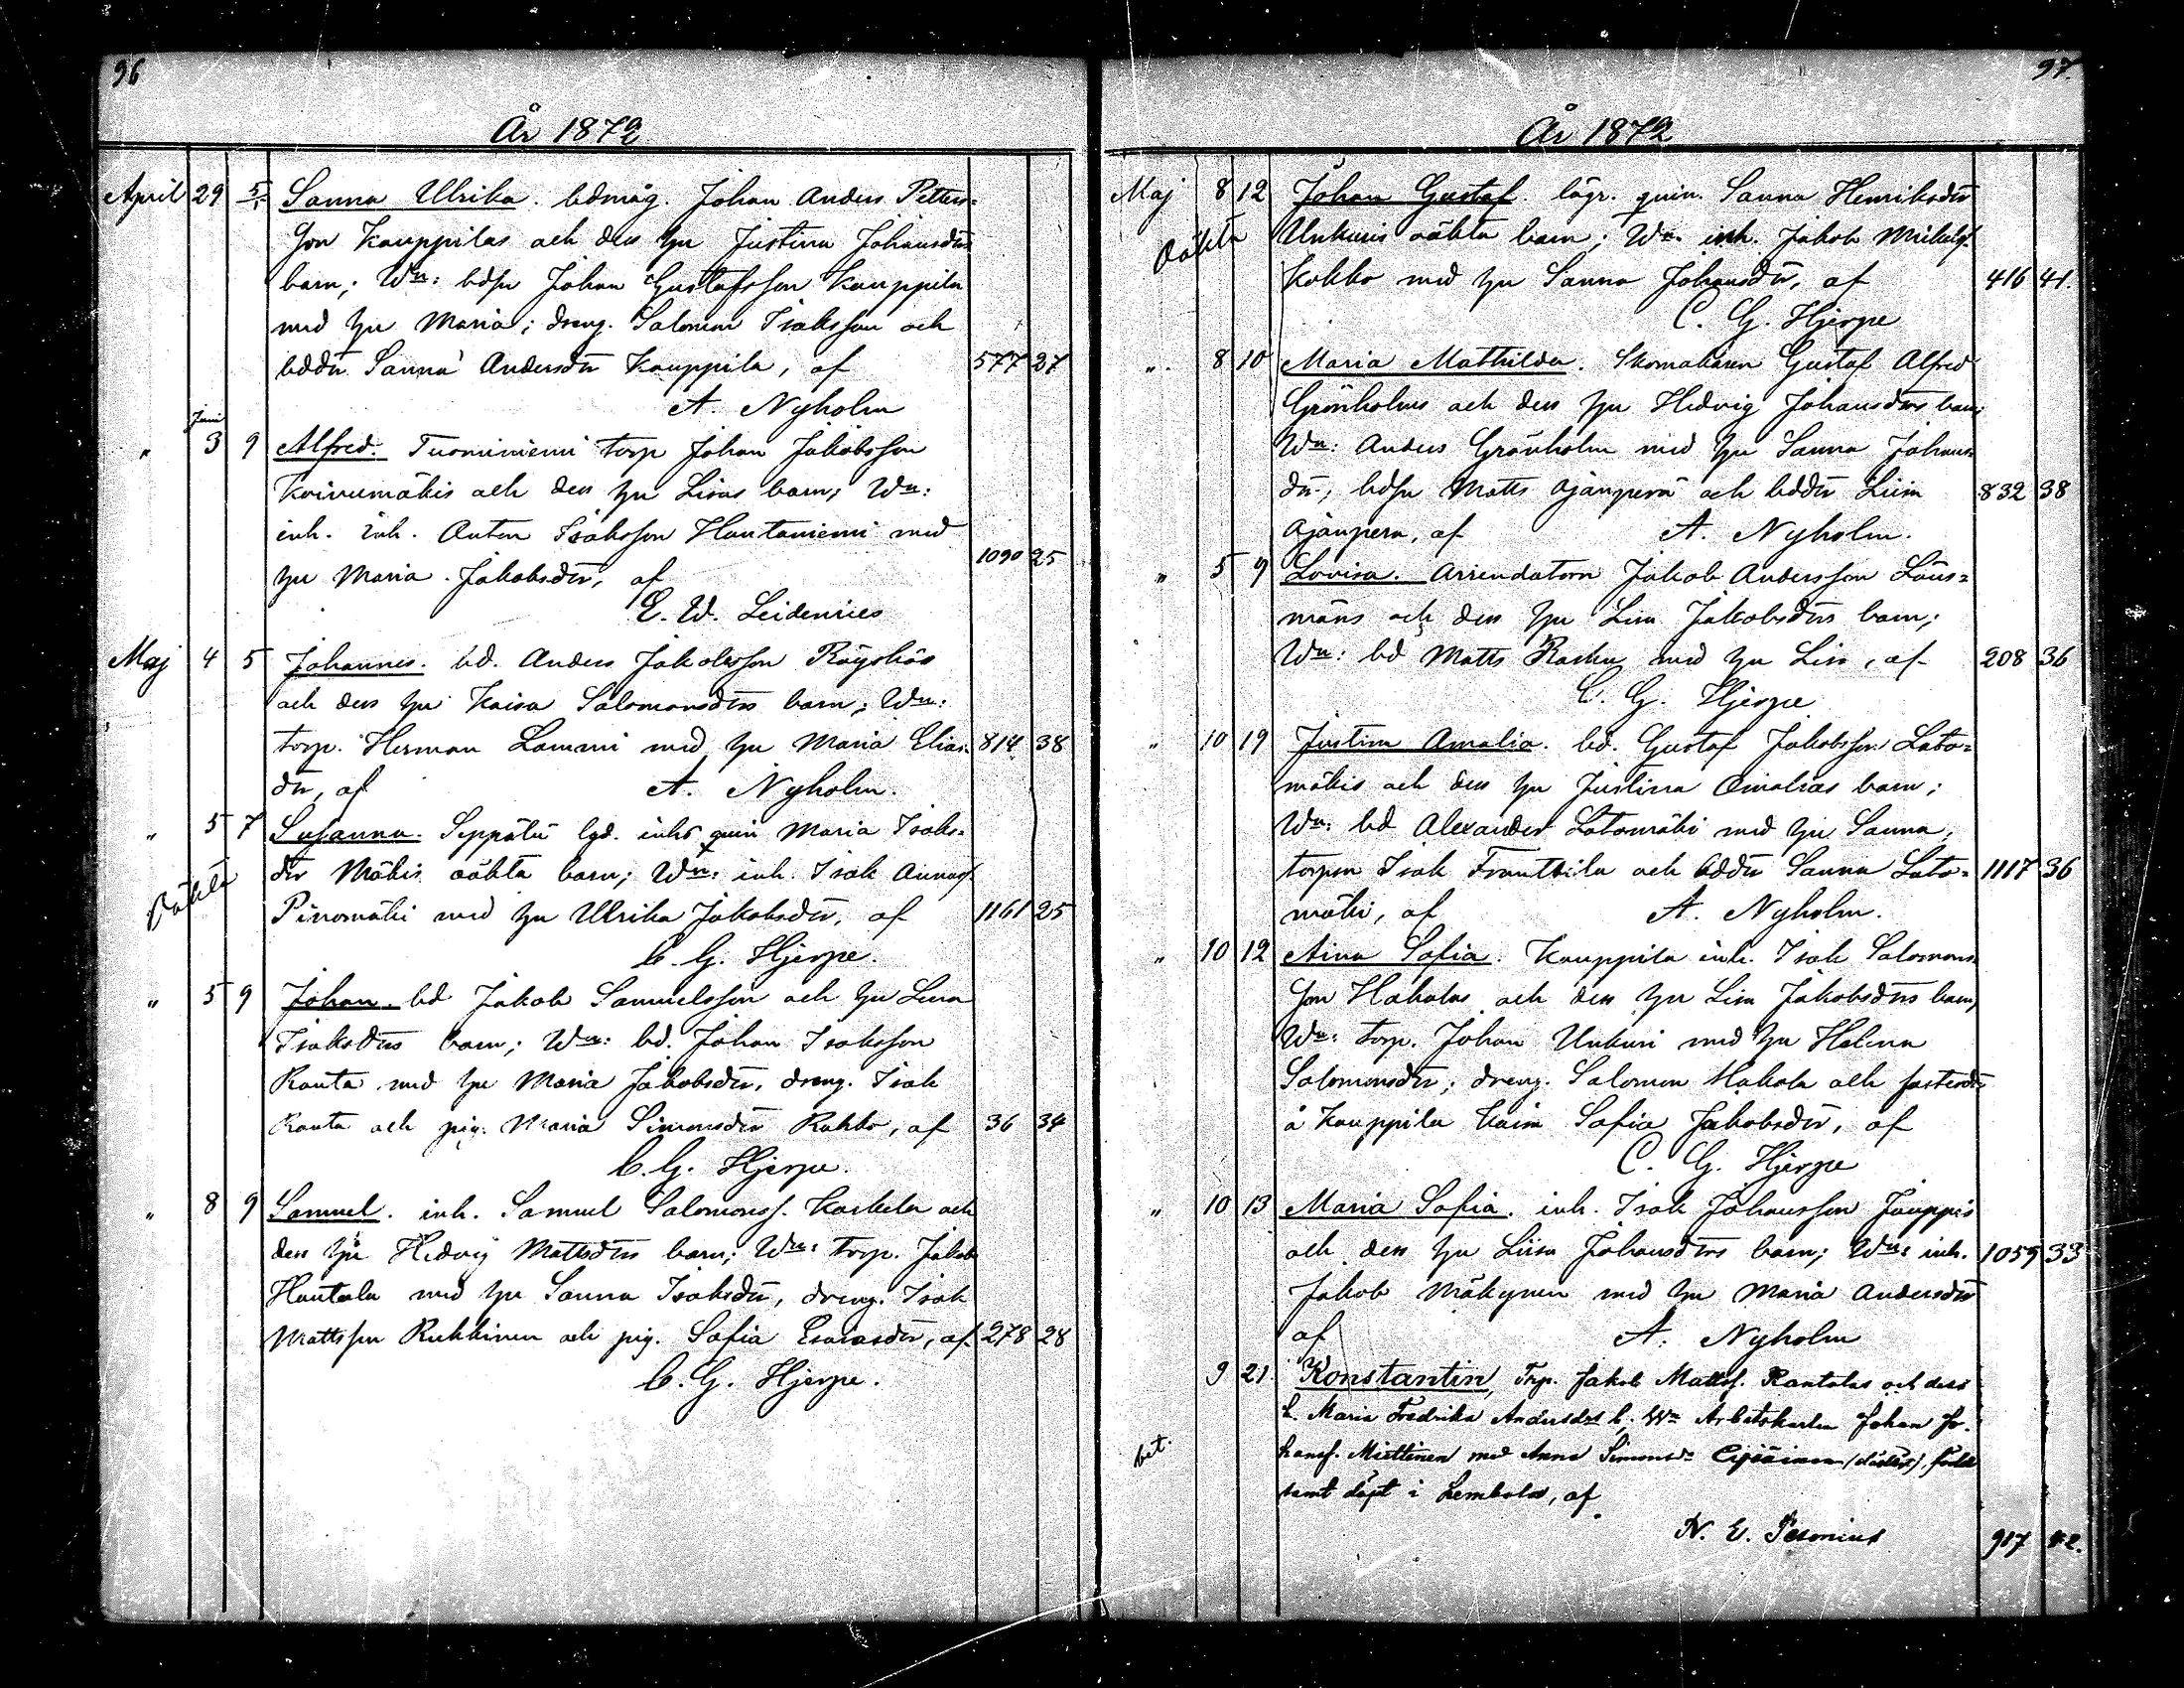 96
År 1872
April 29 5/5 Sanna Ulrika. bdmåg. Johan Anders Petters=
son Kauppilas och dess hu Justina Johansdrs
barn; Wn: bdsn Johan Gustafsson Kauppila
med hu Maria; dreng. Salomon Isaksson och
bddr Sanna Andersdr Kauppila, af 577 27
A. Nyholm
Juni
" 3 9 Alfred. Tuominiemi torp Johan Jakobsson
Koivumäkis och dess hu Lisas barn; Wn:
inh. inh. Anton Isaksson Hautaniemi med
hu Maria Jakobsdr, af 1090 25
E. W. Leidenius
Maj 4 5 Johannes. bd. Anders Jakobsson Röyskös
och dess hu Kaisa Salomonsdrs barn; Wn:
torp. Herman Lammi med hu Maria Elias 814 38
dr, af A. Nyholm.
" 5 7 Susanna. Seppälä lgd. inhs quin Maria Isaks=
dr Mäkis oäkta barn; Wn: inh. Isak
Oäkta
Pinomäki med hu Ulrika Jakobsdr, af 1161 25
C. G. Hjerpe.
" 5 9 Johan. bd Jakob Samuelsson och hu Lisa
Isaksdrs barn; Wn: bd. Johan Isaksson
Rauta med hu Maria Jakobsdr, dreng. Isak
Rauta och pig. Maria Simonsdr Kokko, af 36 34
C. G. Hjerpe.
" 8 9 Samuel. inh. Samuel Salomonss. Karhula och
dess hu Hedvig Mattsdrs barn; Wn: torp. Jakob
Hautala med hu Sanna Isaksdr, dreng. Isak
Mattsson Rukkinen och pig. Sofia Esaiasdr, af 278 28
C. G. Hjerpe.
97.
År 1872
Maj 8 12 Johan Gustaf. lägr. quin. Sanna Henriksdr
Oäkta
Unkuris oäkta barn; Wn. inh. Jakob Mikelss.
Kokko med hu Sanna Johansdr, af 416 41.
C. G. Hjerpe
" 8 10 Maria Mathilda. Skomakaren Gustaf Alfred
Grönholms och dess hu Hedvig Johansdrs barn;
Wn: Anders Grönholm med hu Sanna Johans=
dr; bdsn Matts Ojanperä och bddr Liisa 832 38
Ojanperä, af A. Nyholm.
" 5 9 Lovisa. Arrendatorn Jakob Andersson Läns=
mäns och dess hu Lisa Jakobsdrs barn;
Wn: bd Matts Rasku med hu Lisa, af 208 36
C. G. Hjerpe
" 10 19 Justina Amalia. bd. Gustaf Jakobsson Lato=
mäkis och dess hu Justina Amalias barn;
Wn: bd Alexander Latomäki med hu Sanna,
torpsn Isak Franttila och bddr Sanna Lato= 1117 36
mäki, af A. Nyholm.
" 10 12 Aina Sofia. Kauppila inh. Isak Salomons=
son Hakalas och dess hu Lisa Jakobsdrs barn;
Wn: torp. Johan Unkuri med hu Helena
Salomonsdr; dreng. Salomon Hakala och
å Kauppila Kaisa Sofia Jakobsdr, af
C. G. Hjerpe
" 10 13 Maria Sofia. inh. Isak Johansson Jauppis
och dess hu Liisa Johansdrs barn; Wn: inh. 1059 33
Jakob Mäkynen med hu Maria Andersdr
af A. Nyholm
9 21. Konstantin, Trp. Jakob Matts. Rantalas och dess
h. Maria Fredrika Andersdrs b; Wn Arbetskarlen Johan Jo-
bet.
hanss. Miettinen med Anna Simonsdr född
samt döpt i Lembola, af
N. E. Pesonius 917 42.